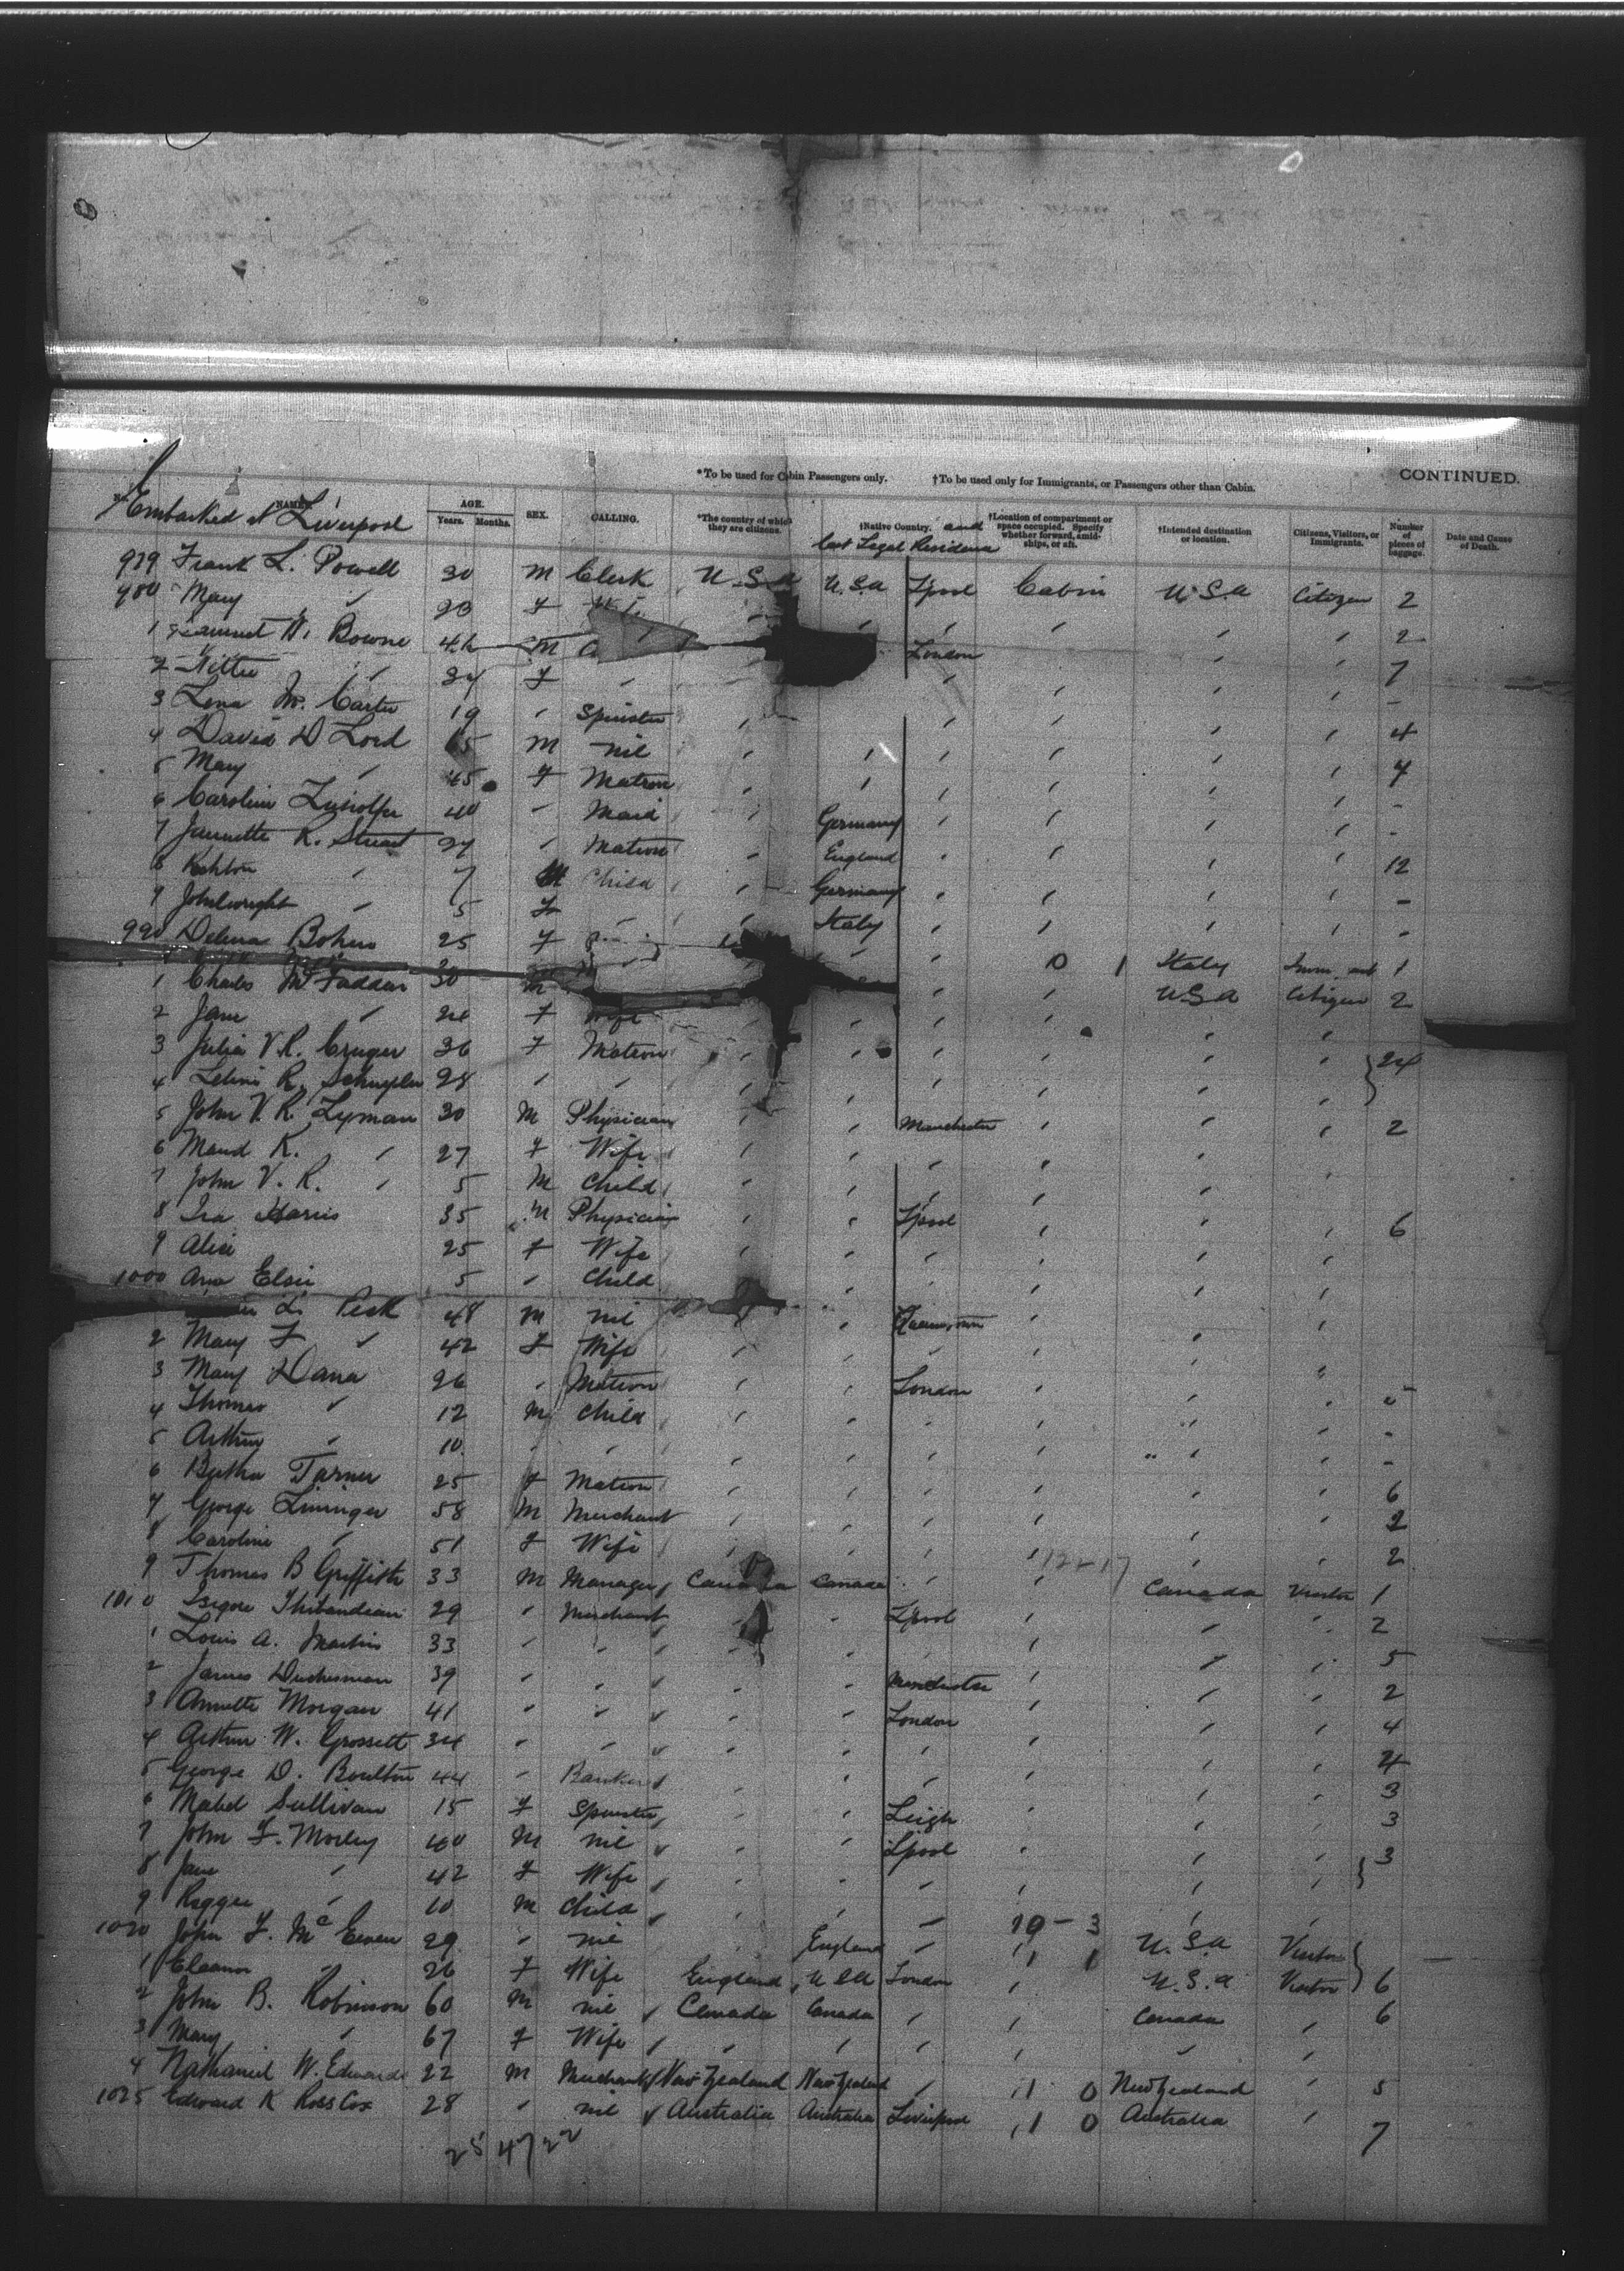 *To be used for Cabin Passengers only. †To be used only for Immigrants, or Passengers other than Cabin. CONTINUED.
No. NAMES. AGE. Years. Months. SEX. CALLING. *The country of which they are citizens. †Native Country. and last Legal Residence †Location of compartment or space occupied. Specify whether forward, amidships, or aft. †Intended destination or location. Citizens, Visitors, or Immigrants. Number of pieces of baggage. Date and Cause of Death.
Embarked at Liverpool
979 Frank L. Powell 30 M Clerk U.S.A U.S.A Lpool Cabin U.S.A Citizen 2
980 Mary " F " " " " " " 2
1 H. Bowne M London " " " 7
2 Nettie " F " " " " " -
3 Lena M. Carter 19 " Spinster " " " " " " 4
4 David D Lord M nil " " " " " " 4
5 Mary " 45 F Matron " " " " " " -
6 40 " Maid " Germany " " " " -
7 Jannette K. Stuart 27 " Matron " England " " " " 12
8 " 7 M Child " Germany " " " " -
9 " 5 F " " Italy " " " " -
990 25 F " 0 1 Italy 1
1 Charles McFaddar 30 M " " U.S.A Citizen 2
2 Jane " F Wife " " " " "
3 Julia V.R. Cruger 36 F Matron " " " " " " 24
4 28 " " " " " " " "
5 John V.R. Lyman 30 M Physician " " Manchester " " " 2
6 Maud K. " 27 F Wife " " " " " "
7 John V. R. " 5 M Child " " " " " "
8 Ira Harris 35 M Physician " " Lpool " " " 6
9 Alice 25 F Wife " " " " " "
1000 Elsie 5 " Child " " " " " "
L. Peck 48 M nil " " Queenstown " " "
2 Mary F " 42 F Wife " " " " " "
3 Mary Dana 26 " Matron " " London " " "
4 Thomas " 12 M Child " " " " " " -
5 Arthur " 10 " " " " " " " " -
6 Bertha Turner 25 F Matron " " " " " " 6
7 George Lininger 58 M Merchant " " " " " " 2
8 Caroline " 51 F Wife " " " " " " 2
9 Thomas B Griffith 33 M Manager Canada Canada " " Canada Visitor 1
1010 29 " Merchant " " Lpool " " " 2
1 Louis A. Martin 33 " " " " " " " " 5
2 James 39 " " " " Manchester " " " 2
3 Annette Morgan 41 " " " " London " " " 4
4 Arthur W. Grossett 34 " " " " " " " " 4
5 George D. Boulton 44 " Banker " " " " " " 3
6 Mabel Sullivan 15 F Spinster " " Leigh " " " 3
7 John F. Morley 40 M nil " " Lpool " " " 3
8 Jane " 42 F Wife " " " " " "
9 Reggie " 10 M Child " " " 19 - 3 " "
1020 John F. McEwen 29 " nil England " " 1 1 U.S.A Visitor
1 Eleanor " 26 F Wife England U.S.A London " U.S.A Visitor 6
2 John B. Robinson 60 M nil Canada Canada " " Canada " 6
3 Mary " 67 F Wife " " " " " "
4 Nathaniel W. Edwards 22 M Merchant New Zealand New Zealand " 1 0 New Zealand " 5
1025 Edward K Ross Cox 28 " nil Australia Australia Liverpool 1 0 Australia " 7
25 47 22